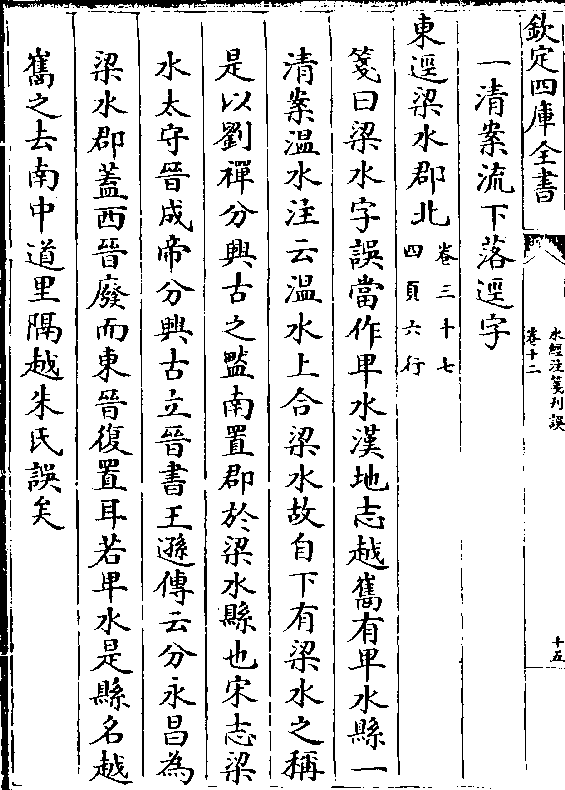 欽定四庫全書
水經注箋刋誤
卷十二
十五
一清案流下落逕字
東逕梁水郡北卷三十七
四頁六行
箋曰梁水字誤當作卑水漢地志越嶲有卑水縣一
清案温水注云温水上合梁水故自下有梁水之稱
是以劉禪分興古之㽉南置郡於梁水縣也宋志梁
水太守晉成帝分興古立晉書王遜傳云分永昌為
梁水郡蓋西晉廢而東晉復置耳若卑水是縣名越
嶲之去南中道里隔越朱氏誤矣